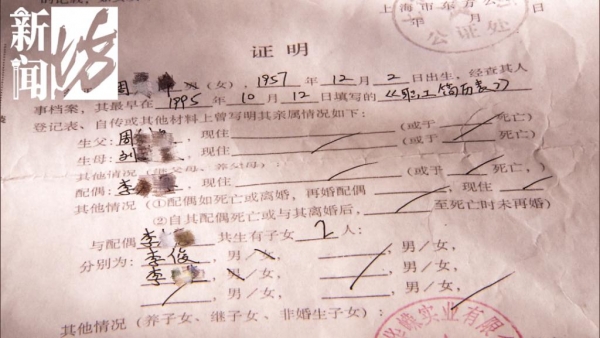 新闻坊
上海市东方公
年 月 日
公证处
证 明
周 男(女),1957 年 12 月 2 日出生,经查其人
事档案,其最早在 1995 年 10 月 12 日填写的《职工简历表》
登记表、自传或其他材料上曾写明其亲属情况如下:
生父:周 ,现住 (或于 死亡)
生母:刘 ,现住 (或于 死亡)
其他情况(继父母、养父母):
配偶:李 ,现住 (或于 死亡,)
其他情况(①配偶如死亡或离婚,再婚配偶 ,现住 )
②自其配偶死亡或与其离婚后, 至死亡时未再婚)
与配偶 李 共生有子女 2 人:
分别为:李俊 ,男/女, ,男/女,
李 ,男/女, ,男/女,
,男/女, ,男/女,
其他情况(养子女、继子女、非婚生子女):
实业有限